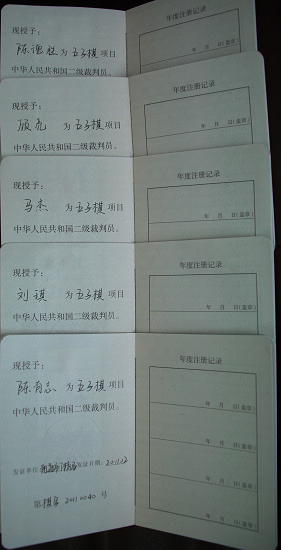 现授予：
陈 为五子棋项目
中华人民共和国二级裁判员。
年度注册记录
年 月 日(盖章)
现授予：
顾亮 为五子棋项目
中华人民共和国二级裁判员。
年度注册记录
年 月 日(盖章)
现授予：
马杰 为五子棋项目
中华人民共和国二级裁判员。
年度注册记录
年 月 日(盖章)
现授予：
刘琪 为五子棋项目
中华人民共和国二级裁判员。
年度注册记录
年 月 日(盖章)
现授予：
陈有志 为五子棋项目
中华人民共和国二级裁判员。
发证单位 发证日期：2011.12
第 2011 0040 号
年度注册记录
年 月 日(盖章)
年 月 日(盖章)
年 月 日(盖章)
年 月 日(盖章)